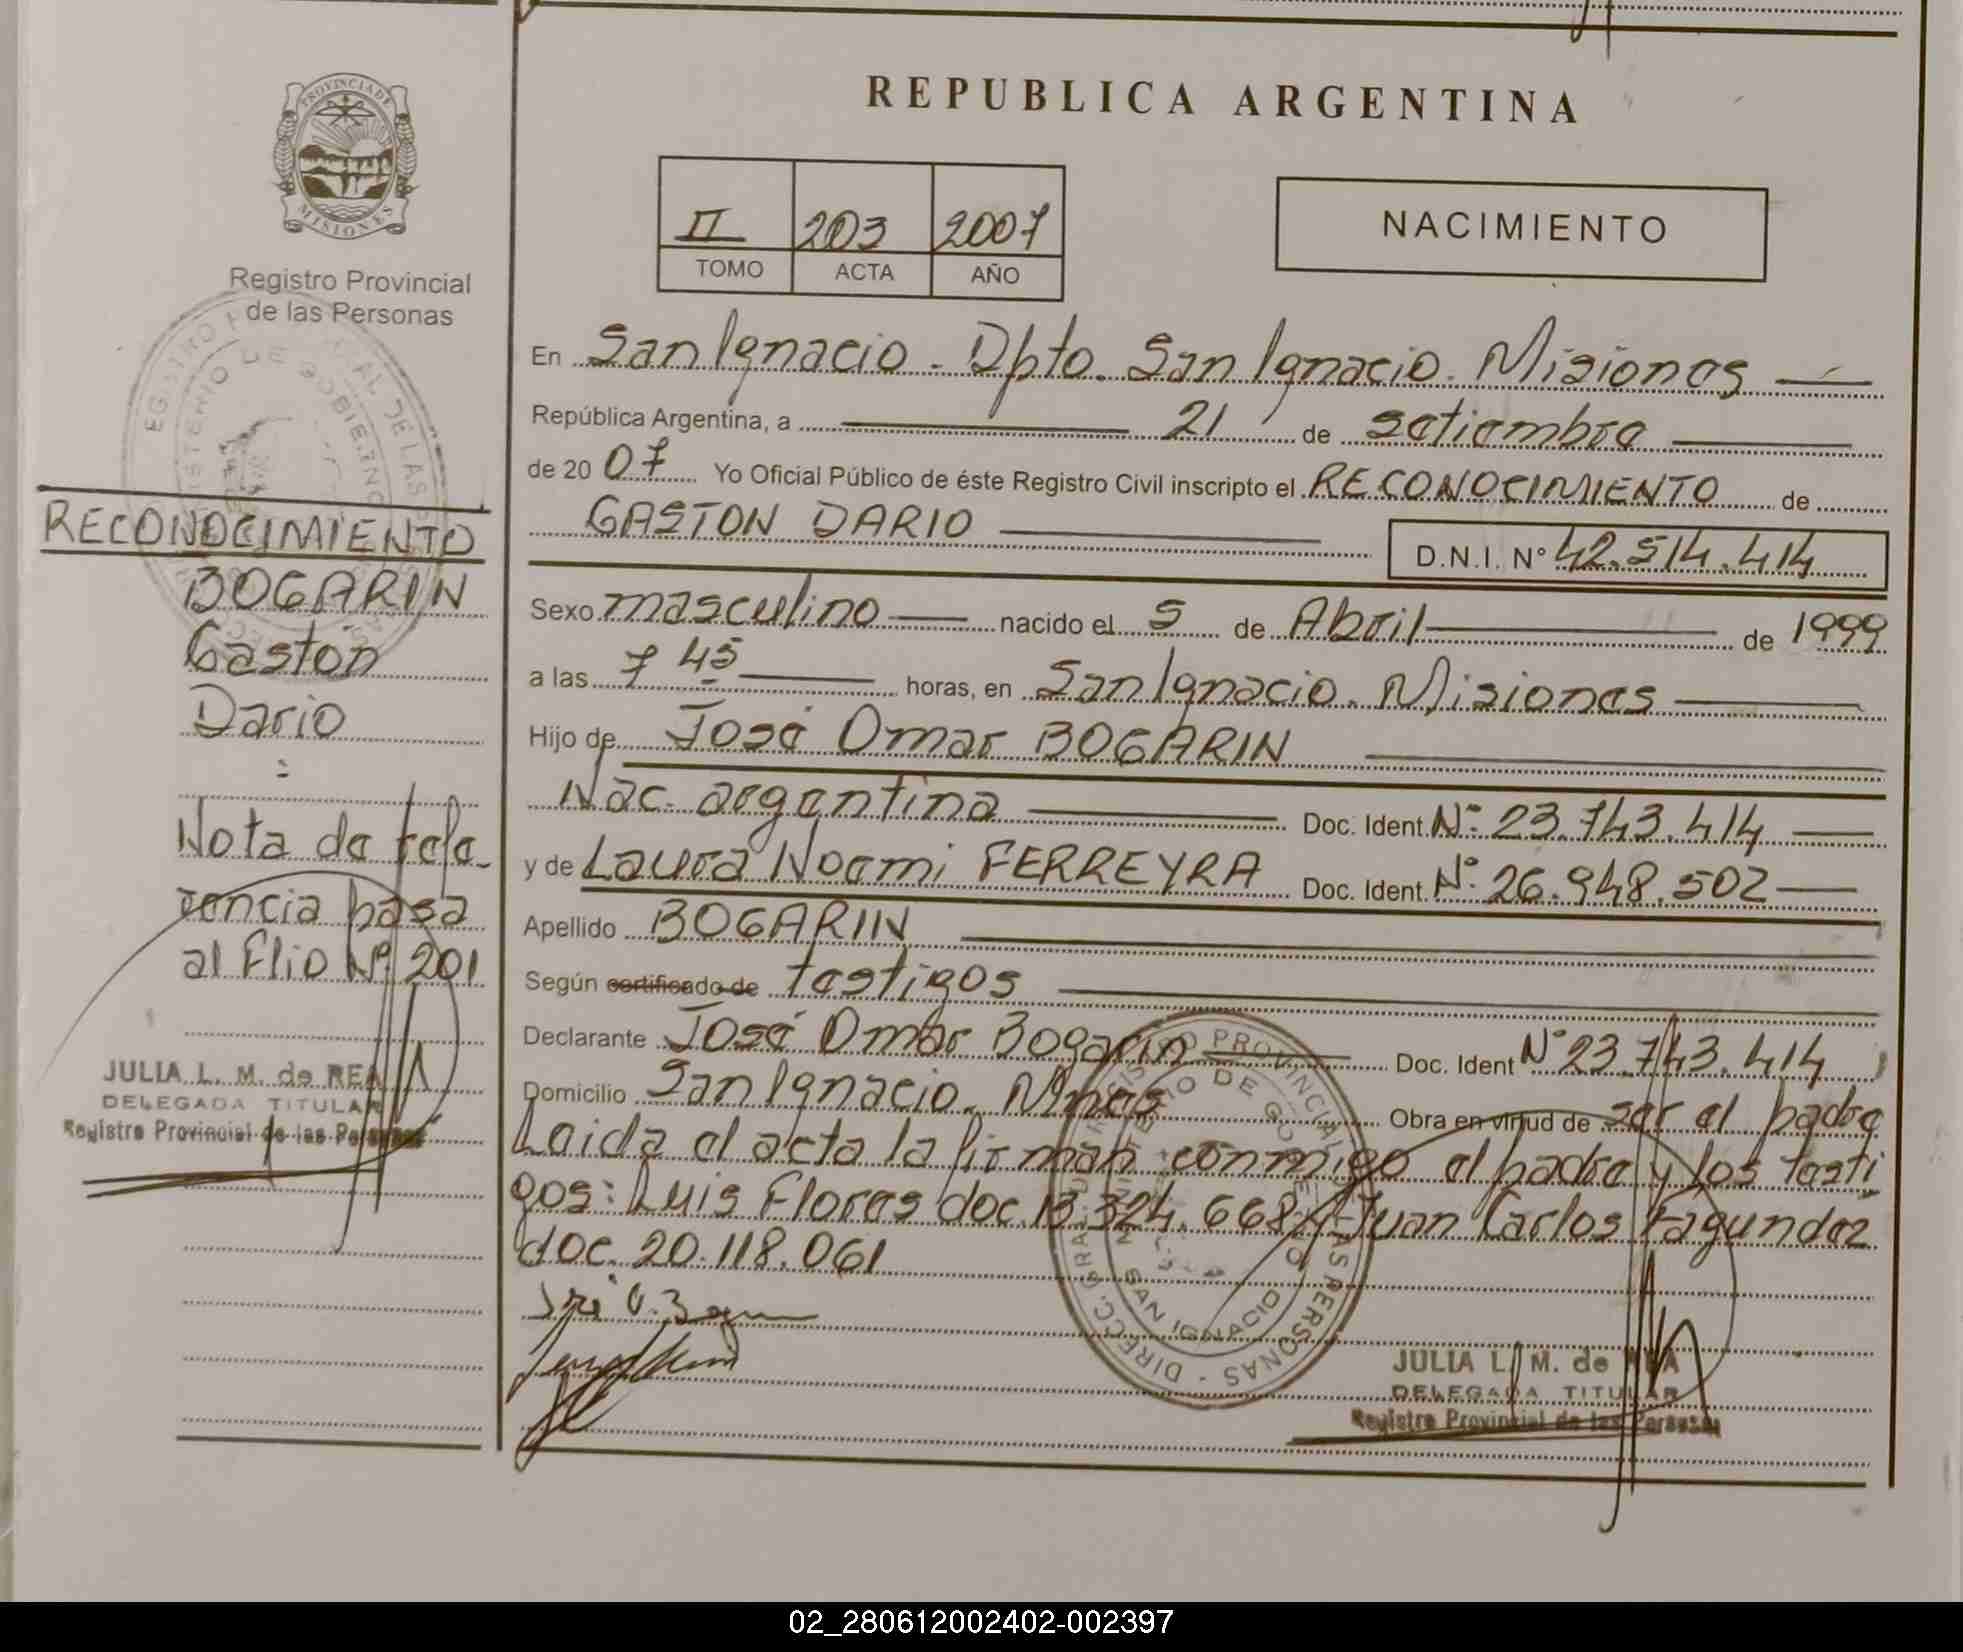 PROVINCIA DE
MISIONES
Registro Provincial
de las Personas
RECONOCIMIENTO
BOGARIN
Gastón
Dario
Nota de refe-
rencia pasa
al Flio Nº 201
JULIA L. M. de REA
DELEGADA TITULAR
Registro Provincial de las Personas
REPUBLICA ARGENTINA
II 203 2007
TOMO ACTA AÑO
NACIMIENTO
En San Ignacio - Dpto. San Ignacio. Misiones
República Argentina, a 21 de setiembre
de 20 07 Yo Oficial Público de éste Registro Civil inscripto el RECONOCIMIENTO de
GASTON DARIO D.N.I. Nº 42.514.414
Sexo masculino nacido el 5 de Abril de 1999
a las 7 45 horas, en San Ignacio. Misiones
Hijo de José Omar BOGARIN
Nac. argentina Doc. Ident. Nº 23.743.414
y de Laura Noemi FERREYRA Doc. Ident. Nº 26.948.502
Apellido BOGARIN
Según certificado de testigos
Declarante José Omar Bogarin Doc. Ident Nº 23.743.414
Domicilio San Ignacio. Mnes Obra en virtud de ser el padre
Leida el acta la firman conmigo el padre y los testi
gos: Luis Flores doc. 13.324.668 y Juan Carlos Fagundez
doc. 20.118.061
DIRECC. GRAL. REGISTRO PROVINCIAL DE LAS PERSONAS
MINISTERIO DE GOBIERNO
SAN IGNACIO
JULIA L. M. de REA
DELEGADA TITULAR
Registro Provincial de las Personas
02_280612002402-002397